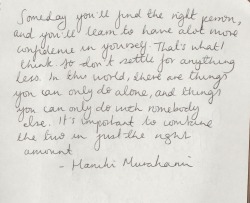 Someday you'll find the right person,
and you'll learn to have alot more
confidence in yourself. That's what I
think. So don't settle for anything
less. In this world, there are things
you can only do alone, and things
you can only do with somebody
else. It's important to combine
the two in just the right
amount.
- Haruki Murakami